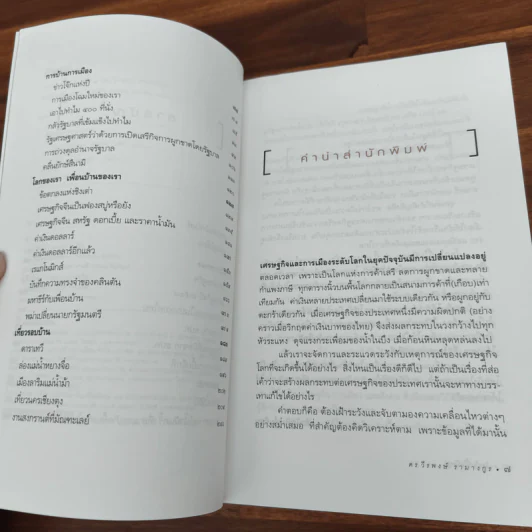 การบ้านการเมือง
ข่าวโจ๊กแห่งปี
การเมืองโฉมใหม่ของเรา
เอาไปทำไม ๕๐๐ ที่นั่ง
กลัวรัฐบาลที่เข้มแข็งไปทำไม
รัฐเศรษฐศาสตร์ว่าด้วยการเปิดเสรีกิจการผูกขาดโดยรัฐบาล
การถ่วงดุลอำนาจรัฐบาล
คลื่นยักษ์สึนามิ
โลกของเรา เพื่อนบ้านของเรา
ข้อตกลงแห่งชิงเต่า
เศรษฐกิจจีนเป็นฟองสบู่หรือยัง
เศรษฐกิจจีน สหรัฐ ดอกเบี้ย และราคาน้ำมัน
ค่าเงินดอลลาร์
ค่าเงินดอลลาร์อีกแล้ว
เรแกโนมิกส์
บันทึกความทรงจำของคลินตัน
มหาธีร์กับเพื่อนบ้าน
พม่าเปลี่ยนนายกรัฐมนตรี
เที่ยวรอบบ้าน
ดาราเทวี
ล่องแม่น้ำหยางจื่อ
เมืองล่าริมแม่น้ำม้า
เที่ยวนครเชียงตุง
งานสงกรานต์ที่มัณฑะเลย์
คำนำสำนักพิมพ์
เศรษฐกิจและการเมืองระดับโลกในยุคปัจจุบันมีการเปลี่ยนแปลงอยู่
ตลอดเวลา เพราะเป็นโลกแห่งการค้าเสรี ลดการผูกขาดและทลาย
กำแพงภาษี ทุกตารางนิ้วบนพื้นโลกกลายเป็นสนามการค้าที่(เกือบ)เท่า
เทียมกัน ค่าเงินหลายประเทศเปลี่ยนมาใช้ระบบเดียวกัน หรือผูกอยู่กับ
ตะกร้าเดียวกัน เมื่อเศรษฐกิจของประเทศหนึ่งมีความผิดปกติ (อย่าง
คราวเมื่อวิกฤตค่าเงินบาทของไทย) จึงส่งผลกระทบในวงกว้างไปทุก
หัวระแหง ดุจแรงกระเพื่อมของน้ำในบึง เมื่อก้อนหินหลุดหล่นลงไป
แล้วเราจะจัดการและระแวดระวังกับเหตุการณ์ของเศรษฐกิจ
โลกที่จะเกิดขึ้นได้อย่างไร สิ่งไหนเป็นเรื่องดีก็ดีไป แต่ถ้าเป็นเรื่องที่ส่อ
เค้าว่าจะสร้างผลกระทบต่อเศรษฐกิจของประเทศเรานั้นจะหาทางบรร-
เทาแก้ไขได้อย่างไร
คำตอบก็คือ ต้องเฝ้าระวังและจับตามองความเคลื่อนไหวต่างๆ
อย่างสม่ำเสมอ ที่สำคัญต้องคิดวิเคราะห์ตาม เพราะข้อมูลที่ได้มานั้น
ดร.วีรพงษ์ รามางกูร • ๗